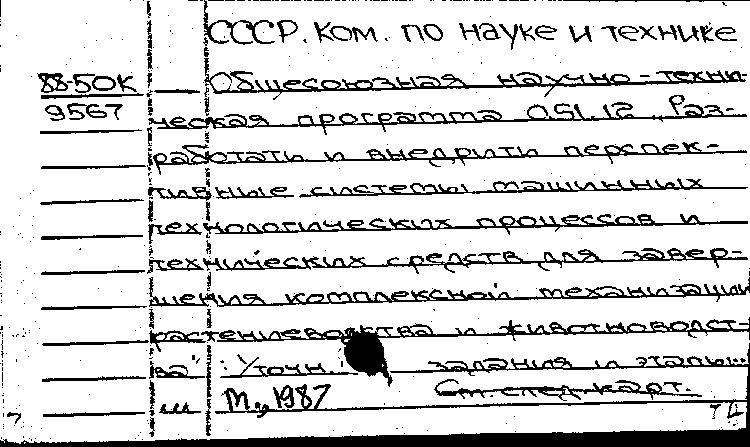 СССР. Ком. по науке и технике
88-50К Общесоюзная научно-техни-
9567 ческая программа 0.51.12 „Раз-
работать и внедрити перспек-
тивные системы машинных
технологических процессов и
технических средств для завер-
шения комплексной механизации
растениеводства и животноводст-
ва" : Уточн. задания и этапы...
М., 1987 См. след. карт.